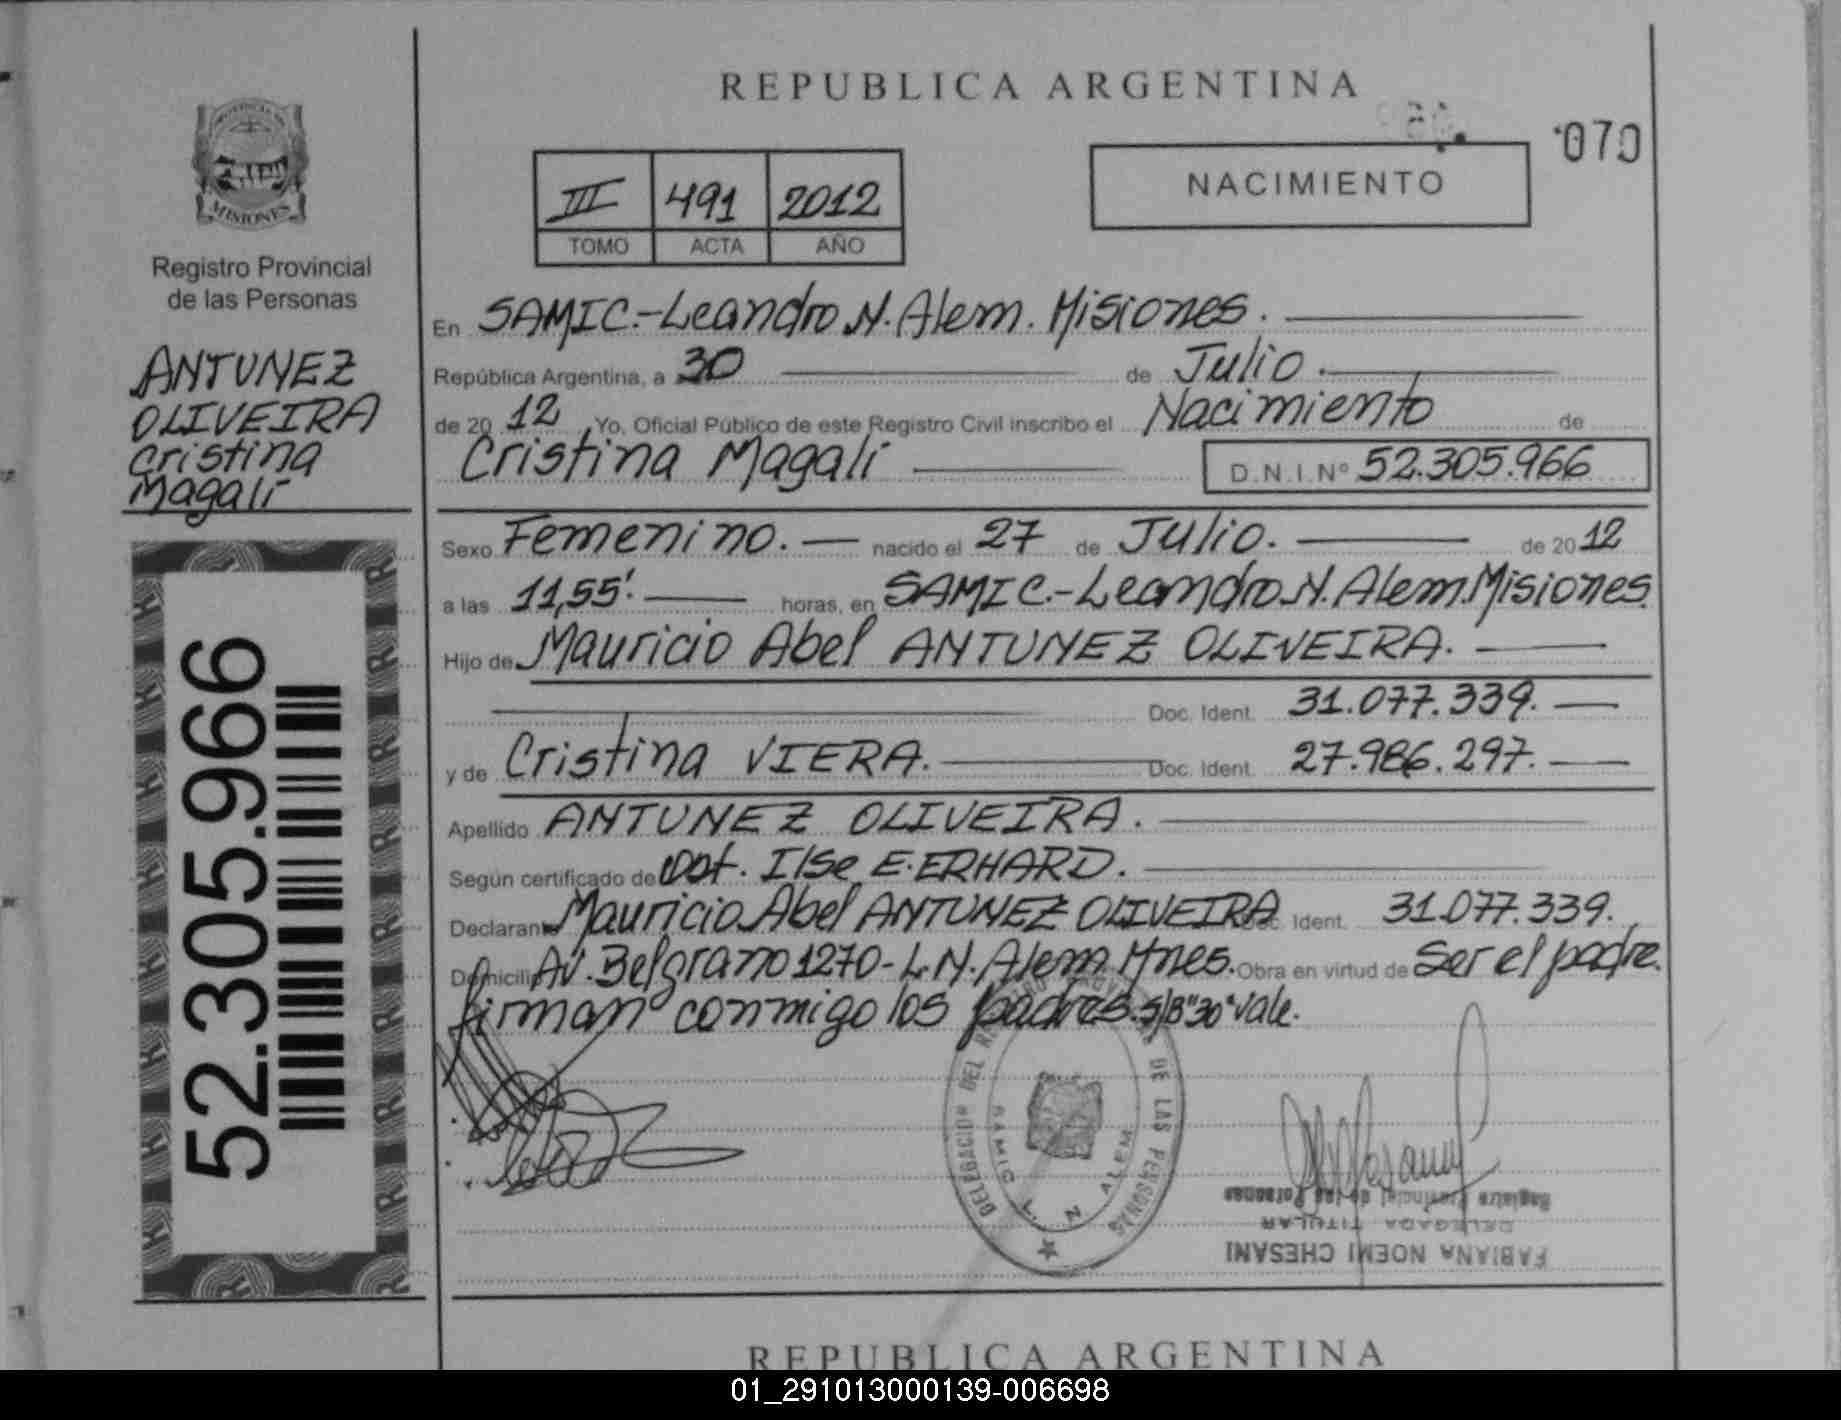 REPUBLICA ARGENTINA
070
PROVINCIA DE
MISIONES
Registro Provincial
de las Personas
ANTUNEZ
OLIVEIRA
Cristina
Magalí
III 491 2012
TOMO ACTA AÑO
NACIMIENTO
En SAMIC.-Leandro N. Alem. Misiones.
República Argentina, a 30 de Julio.
de 20 12 Yo, Oficial Público de este Registro Civil inscribo el Nacimiento de
Cristina Magalí D.N.I. Nº 52.305.966
Sexo Femenino. nacido el 27 de Julio. de 20 12
a las 11,55'. horas, en SAMIC.-Leandro N. Alem. Misiones.
Hijo de Mauricio Abel ANTUNEZ OLIVEIRA.
Doc. Ident. 31.077.339.
y de Cristina VIERA. Doc. Ident. 27.986.297.
Apellido ANTUNEZ OLIVEIRA.
Según certificado de Obst. Ilse E. ERHARD.
Declarante Mauricio Abel ANTUNEZ OLIVEIRA Doc. Ident. 31.077.339.
Domicilio Av. Belgrano 1270-L.N. Alem. Mnes. Obra en virtud de Ser el padre.
firman conmigo los padres. S/B "30" Vale.
52.305.966
DELEGACION DEL REGISTRO PROVINCIAL DE LAS PERSONAS
SAMIC L. N. ALEM
FABIANA NOEMI CHESANI
DELEGADA TITULAR
Registro Provincial de las Personas
REPUBLICA ARGENTINA
01_291013000139-006698